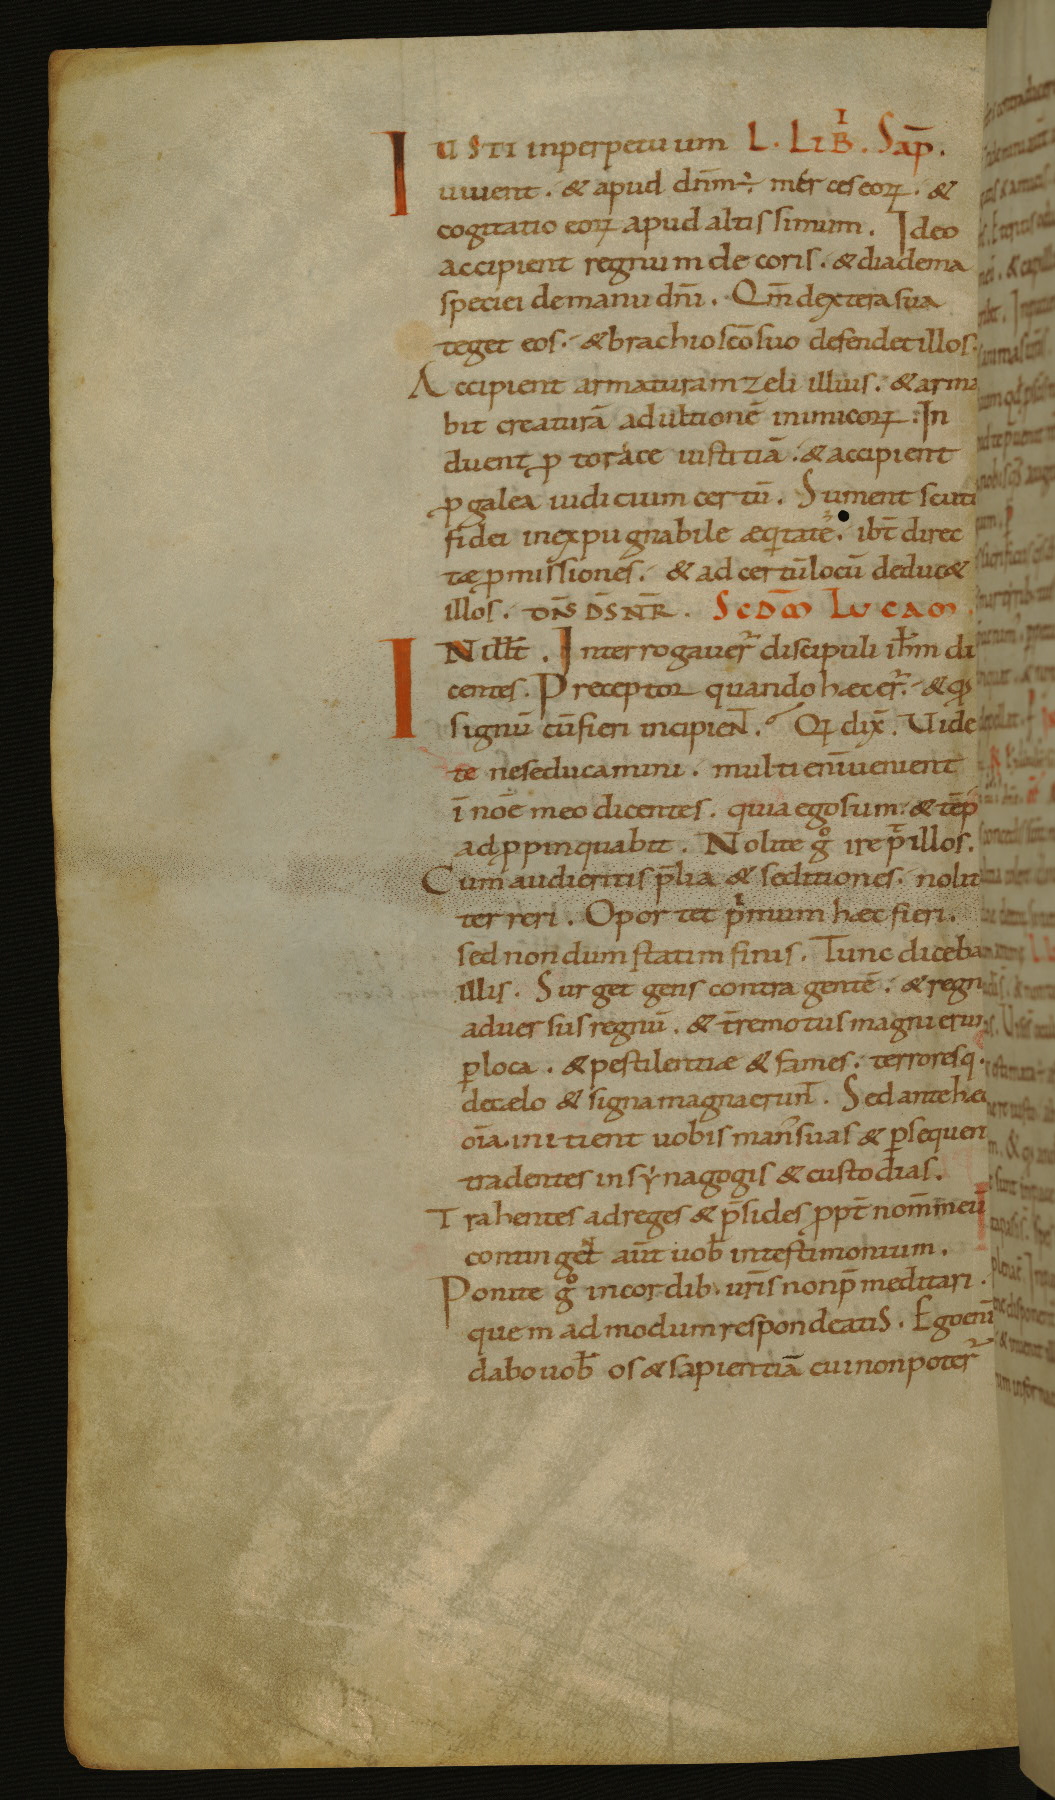 IUSTI inperpetuum L. LIB̅. Sap̅.
uiuent. & apud dn̅m ÷ merces eoꝝ. &
cogitatio eoꝝ apud altissimum. Ideo
accipient regnum decoris. & diadema
speciei demanu dn̅i. Qm̅ dextera sua
teget eos. & brachio sc̅o suo defendet illos.
Accipient armaturam zeli illius. & arma
bit creaturā ad ultionē inimicoꝝ. In
duent ꝓ torace iustitiā. & accipient
ꝓ galea iudicium certū. Sument scutū
fidei inexpugnabile æqitatē. ibt̅ direc
tæ ꝓmissiones. & ad certū locū deducæ
illos. DN̅S DS̅ NR̅. SCDM̅ LUCAM.
IN ill̅t. Interrogauer̅ discipuli ih̅m di
centes. Preceptor quando hæc er̅. & qd
signū cū fieri incipient̅. Qi dix̅. Uide
te ne seducamini. multi eni̅ uenient
ī noē meo dicentes. quia ego sum. & te̅p
adꝓpinquabit. Nolite g̊ ire p̅ illos.
Cum audieritis p̅lia & seditiones. nolite
terreri. Oportet p̅mum hæc fieri.
sed nondum statim finis. Tunc diceba
illis. Surget gens contra gentē. & regnū
aduersus regnū. & t̅remotus magni erunt
ꝑ loca. & pestilentiæ & fames. terroresq.
decælo & signa magna erunt̅. Sed ante hæc
oīa. initient uobis man̅ suas & ꝑsequen
tradentes insynagogis & custodias.
Trahentes ad reges & p̅sides ꝓpt̅ nom̅ meū
continget aut̅ uob̅ intestimonium.
Ponite g̊ incordib. ur̅is non p̅meditari.
quemadmodum respondeatis. Ego eni̅
dabo uob̅ os & sapientiā cui non poter̅